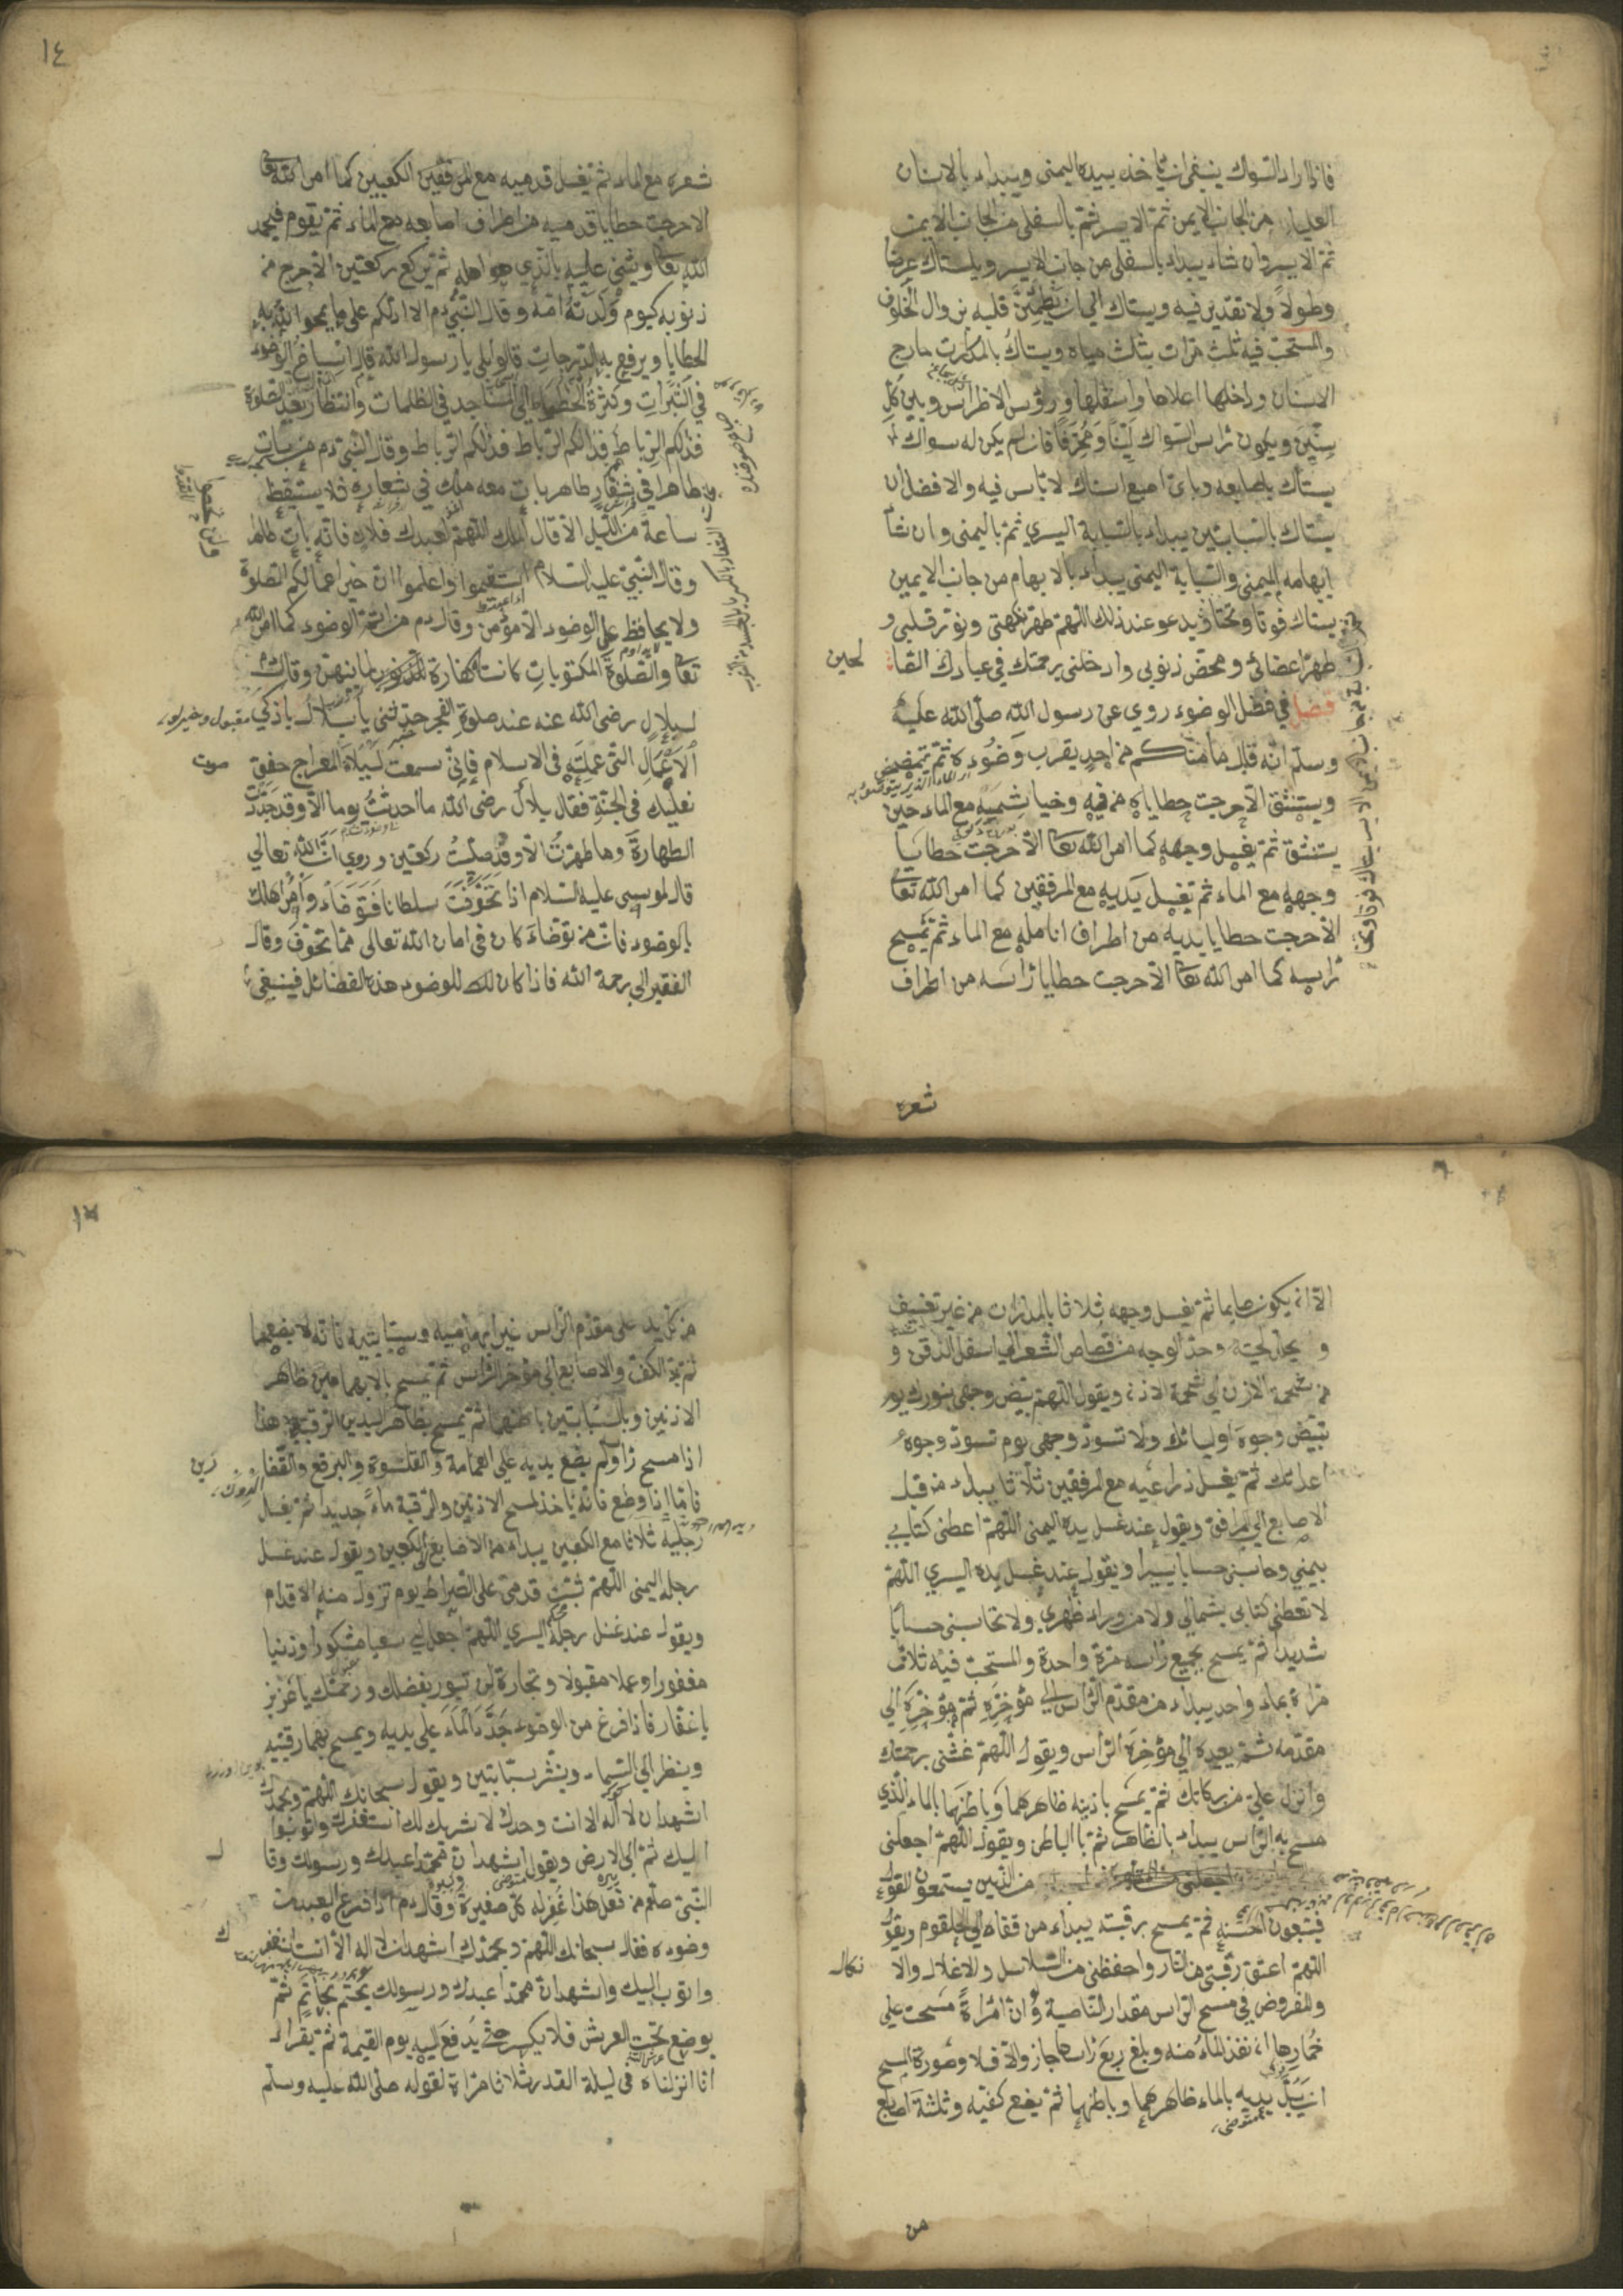 فاذا اراد السواك ينبغي ان يأخذ بيده اليمنى ويبداء بالاسنان
العليا من الجانب الايمن ثمّ الايسر ثمّ بالسفلى من الجانب الايمن
ثمّ الايسر وان شاء يبداء بالسفلى من جانب الايسر ويستاك عرضا
وطولا ولا تقدير فيه ويستاك الى ان يطمئنّ قلبه بزوال الخلوف
والمستحبّ فيه ثلث مرّات بثلث مياه ويستاك بالمدارات خارج
الاسنان وداخلها اعلاها واسفلها ورؤس الاضراس وبين كلّ
سنّين ويكون رأس السواك ليّنا ومحرّفا فان لم يكن له سواك
يستاك باصابعه وبايّ اصبع استاك لا بأس فيه والافضل ان
يستاك بالسبابتين يبداء بالسبابة اليسرى ثمّ باليمنى وان شاء
ابهامه اليمنى والسبابة اليمنى يبداء بالابهام من جانب الايمن
يستاك فوقا وتحتا ويدعو عند ذلك اللهمّ طهّر نكهتي ونوّر قلبي و
طهّر اعضائى ومحّض ذنوبى وادخلنى برحمتك في عبادك الصا
لحين
فصل في فضل الوضوء روي عن رسول الله صلّى الله عليه
وسلّم انّه قال ما منكم من احد يقرب وضوءه ثمّ يتمضمض
ويستنشق الاّ خرجت خطاياه من فيه وخياشيمه مع الماء حين
يستنشق ثمّ يغسل وجهه كما امر الله تعا الاّ خرجت خطايا
وجهه مع الماء ثمّ يغسل يديه مع المرفقين كما امر الله تعا
الاّ خرجت خطايا يديه من اطراف انامله مع الماء ثمّ يمسح
رأسه كما امر الله تعا الاّ خرجت خطايا رأسه من اطراف
شعره
١٤
شعره مع الماء ثمّ يغسل قدميه مع المرفقين الكعبين كما امر الله تعا
الا خرجت خطايا قدميه من اطراف اصابعه مع الماء ثمّ يقوم فيحمد
الله تعا ويثنى عليه بالّذي هو اهله ثمّ يركع ركعتين الاّ خرج من
ذنوبه كيوم ولدته امّه وقال النّبيّ دم الا ادلّكم على ما يمحو الله به
الخطايا ويرفع به الدرجات قالوا بلى يا رسول الله قال اسباغ الوضوء
في السّبرات وكثرة الخطاء الى المساجد في الظلمات وانتظار بعد الصلوة
فذلكم الرّباط فذلكم الرّباط فذلكم الرّباط وقال النّبيّ دم من بات
طاهرا في شعار طاهر بات معه ملك في شعاره فلا يستيقظ
ساعة من اللّيل الاّ قال الملك اللّهمّ لعبدك فلان فانّه بات طاهرا
وقال النّبيّ عليه السّلام استقيموا واعلموا انّ خير اعمالكم الصّلوة
ولا يحافظ على الوضوء الاّ مؤمن وقال دم من اتمّ الوضوء كما امر الله
تعا والصّلوة المكتوبات كانت كفّارة للذنوب لما بينهنّ وقال
لبلال رضى الله عنه عند صلوة الفجر حدّثنى يا بلال باذكى
الاعمال التّي عملته في الاسلام فانّى سمعت ليلة المعراج خفق
صوت
نعليك في الجنّة فقال بلال رضى الله ما احدثتُ يوما الاّ وقد جدّدت
الطهارة وما طهرتُ الاّ وقد صلّيت ركعتين وروي انّ الله تعالى
قال لموسى عليه السّلام اذا تخوّفت سلطانا فتوضّأ وأمر اهلك
بالوضوء فان من توضّأ كان في امان الله تعالى ممّا تخوّف وقال
الفقير الى رحمة الله فاذا كان لك للوضوء هذه الفضائل فينبغي
الاّ ان يكون صايما ثمّ يغسل وجهه ثلاثا بالمدارات من غير تعنيف
و يخلّل لحيته وحدّ الوجه من قصاص الشّعر الى اسفل الذّقن و
من شحمة الاذن الى شحمة الاذن ويقول اللّهمّ بيّض وجهى بنورك يوم
تبيّض وجوه اوليائك ولا تسوّد وجهى يوم تسودّ وجوه
اعدائك ثمّ يغسل ذراعيه مع المرفقين ثلاثا يبداء من قبل
الاصابع الى المرافق ويقول عند غسل يده اليمنى اللّهمّ اعطنى كتابي
بيمينى وحاسبنى حسابا يسيرا ويقول عند غسل يده اليسرى اللّهمّ
لا تعطنى كتابى بشمالى ولا من وراء ظهرى ولا تحاسبنى حسابا
شديدا ثمّ يمسح بجميع رأسه مرّة واحدة والمستحبّ فيه ثلاث
مرّاة بماء واحد يبداء من مقدّم الرّأس الى مؤخّره ثمّ مؤخّره الى
مقدّمه ثمّ يعيده الى مؤخّرة الرّأس ويقول اللّهمّ غشّنى برحمتك
وانزل علىّ من بركاتك ثمّ يمسح باذنيه ظاهرهما وباطنهما بالماء الّذي
مسح به الرّأس يبداء بالظاهر ثمّ باالباطن ويقول اللّهمّ اجعلنى
من الّذين يستمعون القول
فيتّبعون احسنه ثمّ يمسح برقبته يبداء من قفاه الى الحلقوم ويقول
اللّهمّ اعتق رقبتى من النّار واحفظنى من السّلاسل والاغلال والا
نكال
والمفروض في مسح الرّاس مقدار النّاصية وان امرأة مسحت على
خمارها ان نفذ الماء منه وبلغ ربع رأسها جاز والاّ فلا وصورة المسح
ان يبلّ يديه بالماء ظاهرهما وباطنهما ثمّ يضع كفّيه وثلثة اصابع
من
من كلّ يد على مقدّم الرّأس غير ابهاميه وسبّابتيه فانّه لا يضعهما
ثمّ يمدّ الكفّ والاصابع الى مؤخّر الرّأس ثمّ يمسح بالابهامين ظاهر
الاذنين وبالسّبّابتين باطنهما ثمّ يمسح بظاهر اليدين الرّقبة هذا
اذا مسح رأ ولم يضع يديه على العمامة والقلنسوة والبرقع والقفا
زين
فامّا اذا وضع فانّه يأخذ لمسح الاذنين والرّقبة ماءً جديدا ثمّ يغسل
رجليه ثلاثا مع الكعبين يبداء من الاصابع الى الكعبين ويقول عند غسل
رجله اليمنى اللّهمّ ثبّت قدمىّ على الصّراط يوم تزول منه الاقدام
ويقول عند غسل رجله اليسرى اللّهمّ اجعل لي سعيا مشكورا وذنبا
مغفورا وعملا مقبولا وتجارة لن تبور بفضلك ورحمتك يا عزيز
يا غفّار فاذا فرغ من الوضوء جدّد الماء على يديه ويمسح بهما رقبتيه
وينظر الى السّماء وينشر سبّابتين ويقول سبحانك اللّهمّ وبحمدك
اشهد ان لا اله الاّ انت وحدك لا شريك لك استغفرك واتوب
اليك ثمّ الى الارض ويقول اشهد انّ محمّدا عبدك ورسولك وقا
ل
النّبيّ صلعم من فعل هذا غفر له كلّ صغيرة وقال دم اذا فرغ العبد من
وضوءه فقال سبحانك اللّهمّ وبحمدك اشهد ان لا اله الاّ انت استغفر
ك
واتوب اليك واشهد انّ محمّدا عبدك ورسولك يختم بخاتم ثمّ
يوضع تحت العرش فلا يكسر حتّى يدفع اليه يوم القيمة ثمّ يقراء
انّا انزلناه فى ليلة القدر ثلاثا مرّاة لقوله صلّى الله عليه وسلّم